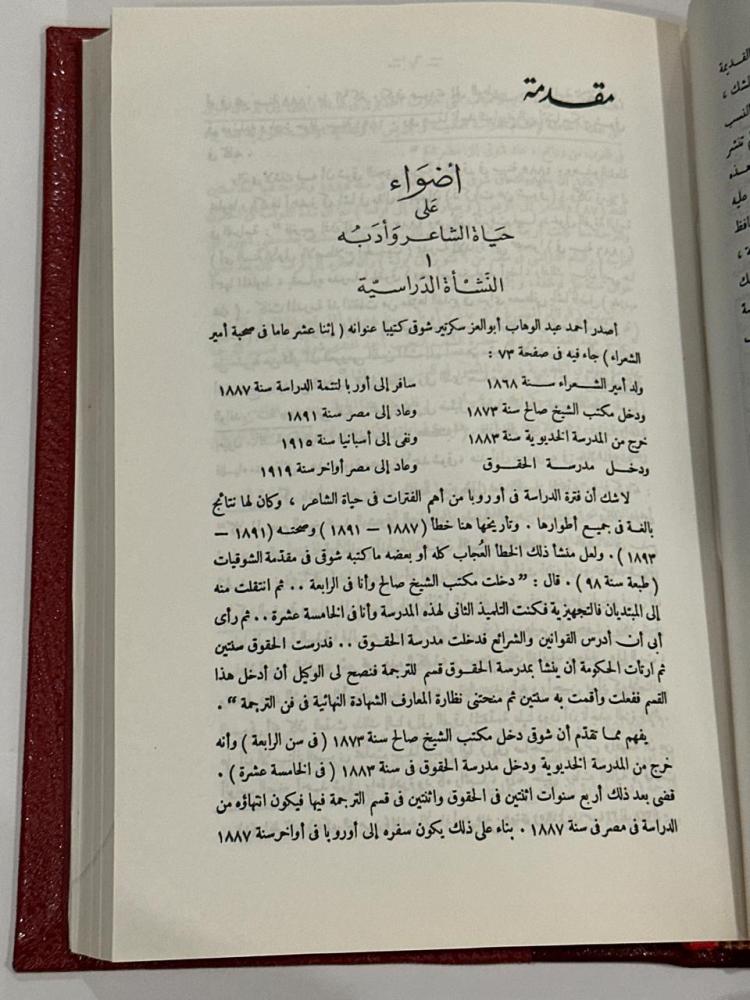 مقدمة
أضواء
على
حياة الشاعر وأدبه
١
النشأة الدراسية
أصدر أحمد عبد الوهاب أبو العز سكرتير شوقى كتيبا عنوانه ( إثنا عشر عاما فى صحبة أمير
الشعراء ) جاء فيه فى صفحة ٧٣ :
ولد أمير الشعراء سنة ١٨٦٨ سافر إلى أوربا لتتمة الدراسة سنة ١٨٨٧
ودخل مكتب الشيخ صالح سنة ١٨٧٣ وعاد إلى مصر سنة ١٨٩١
خرج من المدرسة الخديوية سنة ١٨٨٣ ونفى إلى أسبانيا سنة ١٩١٥
ودخل مدرسة الحقوق وعاد إلى مصر أواخر سنة ١٩١٩
لاشك أن فترة الدراسة فى أوروبا من أهم الفترات فى حياة الشاعر ، وكان لها نتائج
بالغة فى جميع أطوارها . وتأريخها هنا خطأ ( ١٨٨٧ – ١٨٩١ ) وصحته ( ١٨٩١ –
١٨٩٣ ) . ولعل منشأ ذلك الخطأ العُجاب كله أو بعضه ماكتبه شوقى فى مقدّمة الشوقيات
( طبعة سنة ٩٨ ) . قال : " دخلت مكتب الشيخ صالح وأنا فى الرابعة . . ثم انتقلت منه
إلى المبتديان فالتجهيزية فكنت التلميذ الثانى لهذه المدرسة وأنا فى الخامسة عشرة . . ثم رأى
أبى أن أدرس القوانين والشرائع فدخلت مدرسة الحقوق . . فدرست الحقوق سنتين
ثم ارتأت الحكومة أن ينشأ بمدرسة الحقوق قسم للترجمة فنصح لى الوكيل أن أدخل هذا
القسم ففعلت وأقمت به سنتين ثم منحتنى نظارة المعارف الشهادة النهائية فى فن الترجمة " .
يفهم مما تقدّم أن شوقى دخل مكتب الشيخ صالح سنة ١٨٧٣ ( فى سن الرابعة ) وأنه
خرج من المدرسة الخديوية ودخل مدرسة الحقوق فى سنة ١٨٨٣ ( فى الخامسة عشرة ) .
قضى بعد ذلك أربع سنوات اثنتين فى الحقوق واثنتين فى قسم الترجمة فيها فيكون انتهاؤه من
الدراسة فى مصر فى سنة ١٨٨٧ . بناء على ذلك يكون سفره إلى أوروبا فى أواخر سنة ١٨٨٧